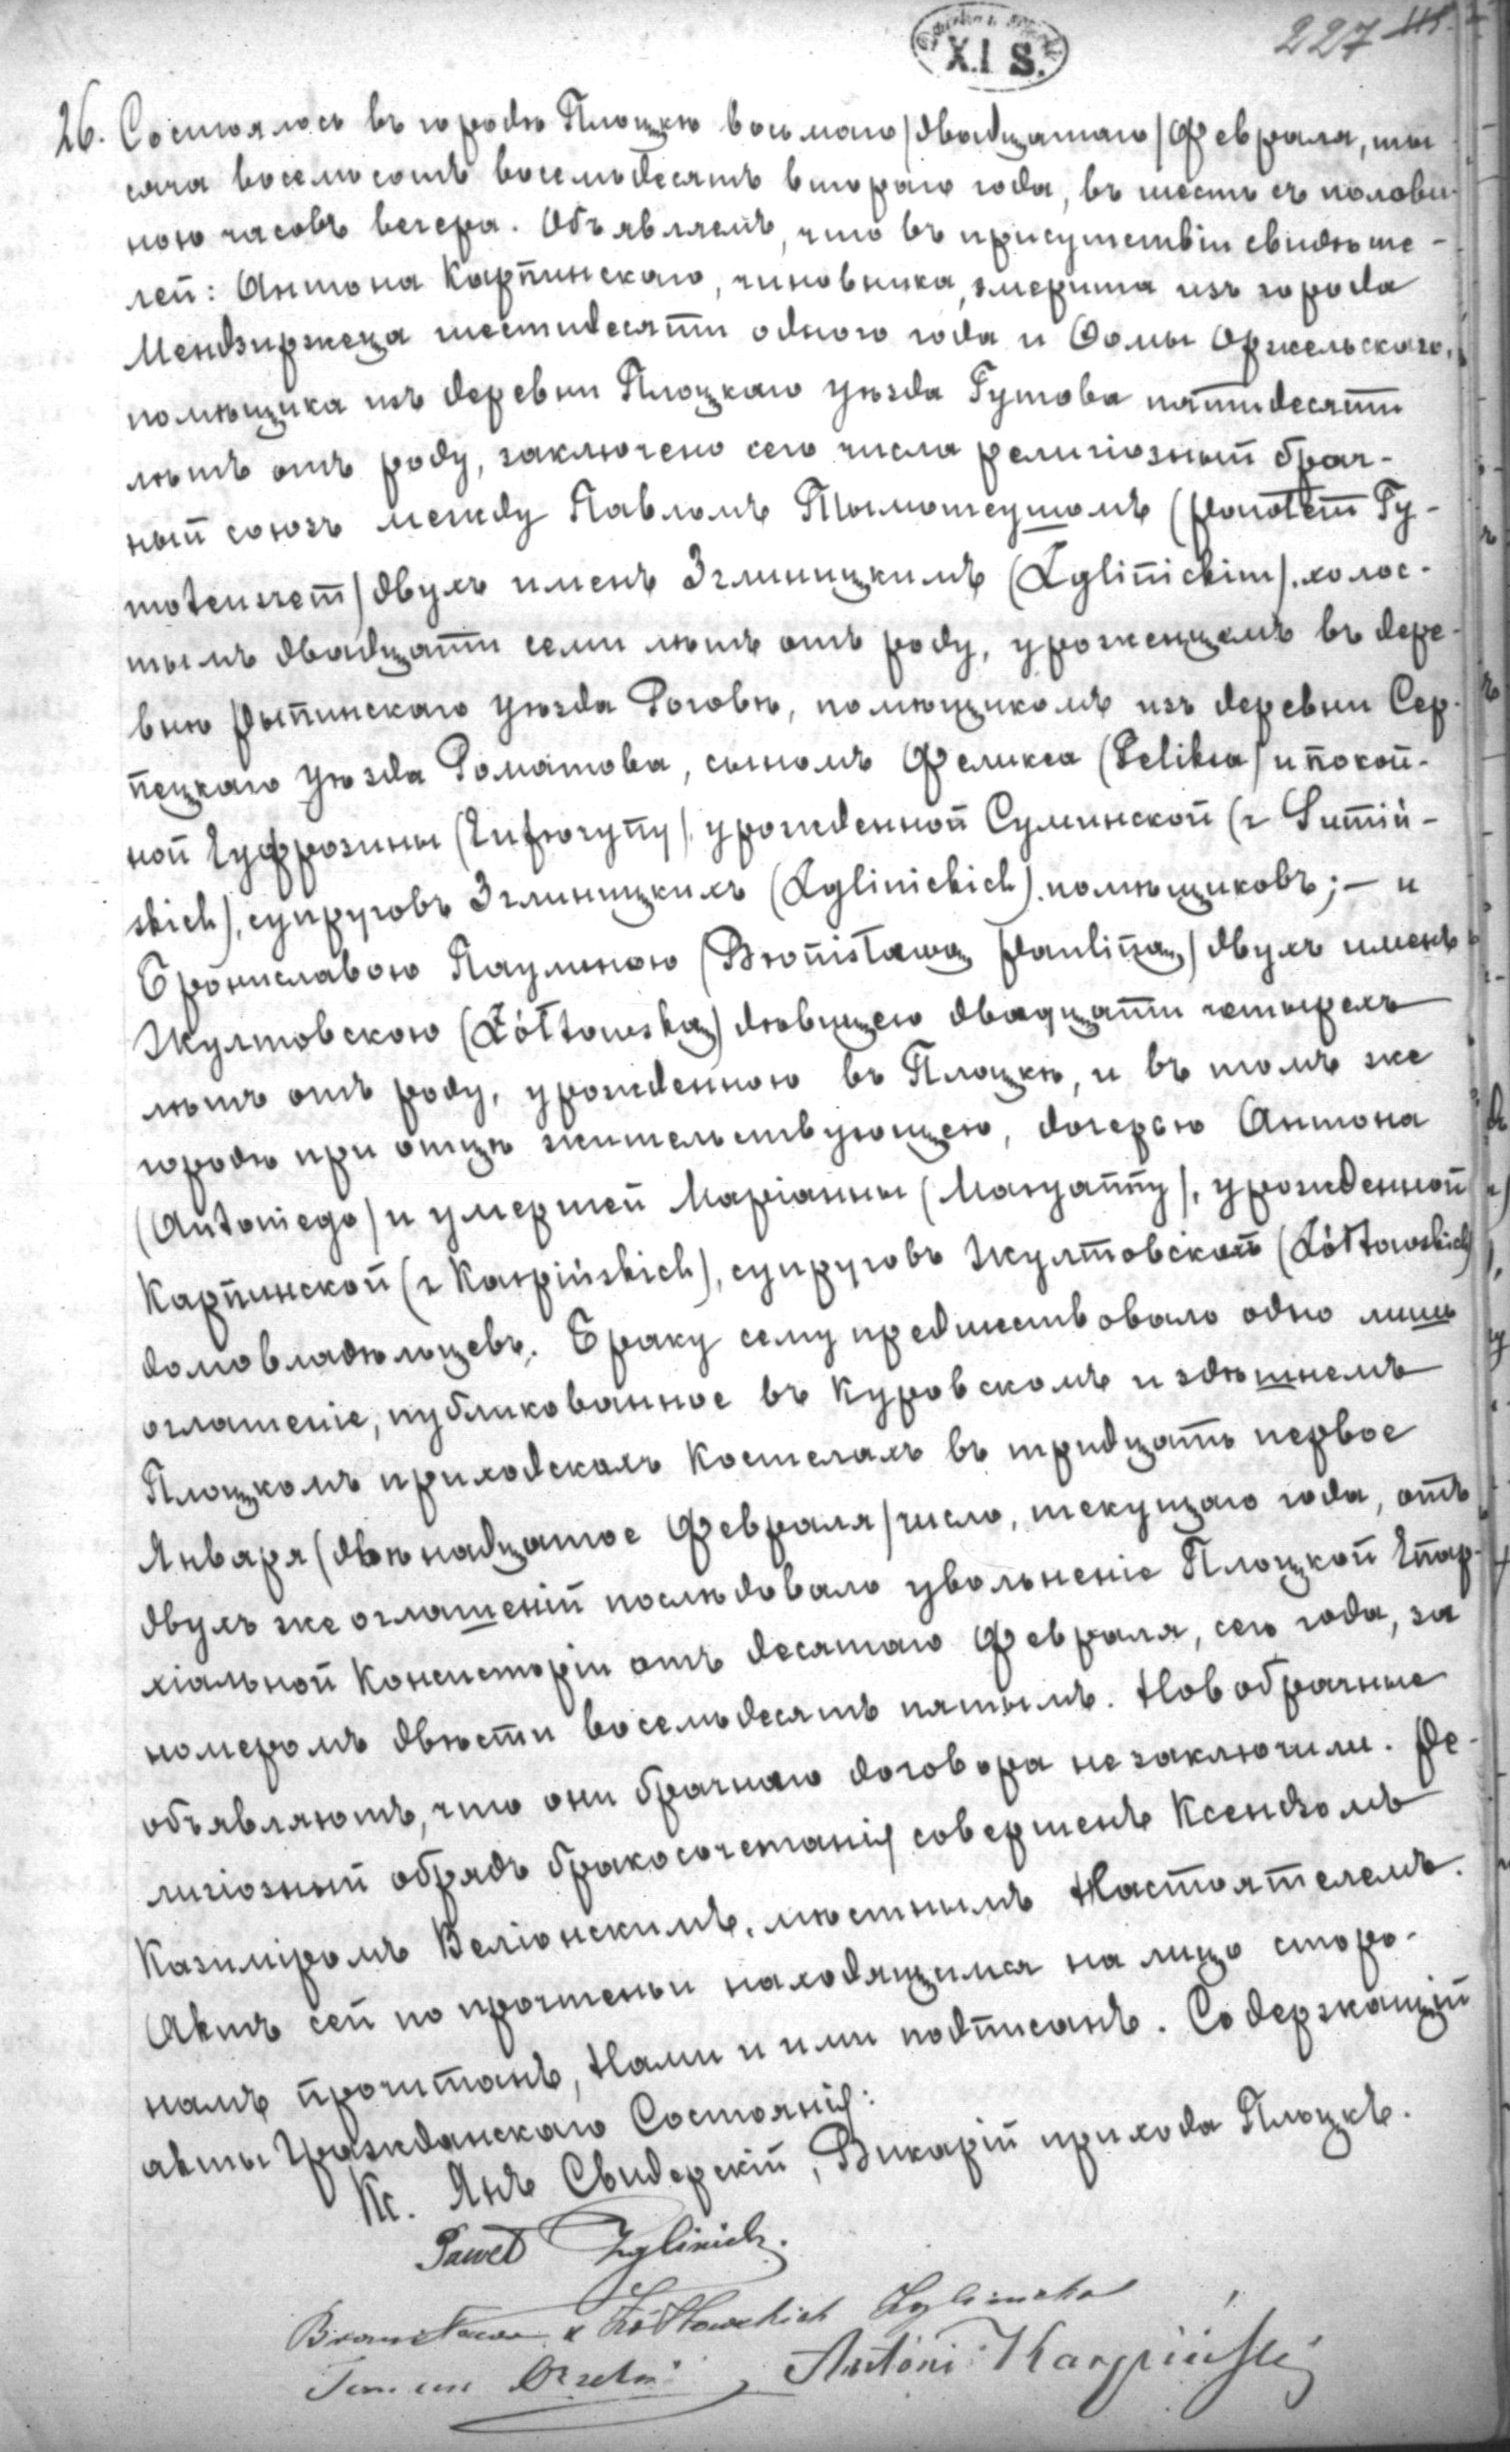 X.I S.
227
26. Состоялось въ городѣ Плоцкѣ восьмаго /двадцатаго/ Февраля, ты
сяча восемьсотъ восемьдесятъ втораго года, въ шесть съ полови-
ною часовъ вечера. Объявляемъ, что въ присутствіи свидѣте-
лей: Антона Карпинскаго, чиновника, эмерита изъ города
Мендзиржеца шестидесяти одного года и Ѳомы Оржельскаго,
помѣщика изъ деревни Плоцкаго уѣзда Гутова пятидесяти
лѣтъ отъ роду, заключено сего числа религіозный брач-
ный союзъ между Павломъ Тымотеушомъ (Pawłem Ty-
moteuszem) двухъ именъ Зглиницкимъ (Zglinickim), холос-
тымъ двадцати семи лѣтъ отъ роду, уроженцемъ въ дере-
внѣ Рыпинскаго уѣзда Роговѣ, помѣщикомъ изъ деревни Сер-
пецкаго уѣзда Роматова, сыномъ Феликса (Feliksa) и покой-
ной Еуфрозины (Eufrozyny), урожденной Суминской (z Sumiń-
skich), супруговъ Зглиницкихъ (Zglinickich), помѣщиковъ; — и
Брониславою Паулиною (Bronisławą Pauliną) двухъ именъ
Жултовскою (Żółtowską) дѣвицею двадцати четырехъ
лѣтъ отъ роду, урожденною въ Плоцкѣ, и въ томъ же
городѣ при отцѣ жительствующею, дочерью Антона
(Antoniego) и умершей Маріанны (Maryanny), урожденной
Карпинской (z Karpińskich), супруговъ Жултовскихъ (Żółtowskich)
домовладѣльцевъ. Браку сему предшествовало одно лишь
оглашеніе, публикованное въ Куровскомъ и здѣшнемъ
Плоцкомъ приходскахъ Костелахъ въ тридцать первое
Января (двѣнадцатое Февраля) число, текущаго года, отъ
двухъ же оглашеній послѣдовало увольненіе Плоцкой Епар-
хіальной Консисторіи отъ десятаго Февраля, сего года, за
номеромъ двѣсти восемьдесятъ пятымъ. Новобрачные
объявляютъ, что они брачнаго договора не заключили. Ре-
лигіозный обрядъ бракосочетанія совершенъ Ксендзомъ
Казиміромъ Веліонскимъ, мѣстнымъ Настоятелемъ.
Актъ сей по прочтеньи находящимся на лицо сторо-
намъ прочитанъ, Нами и ими подписанъ. Содержащій
акты Гражданскаго Состоянія:
Кс. Янъ Свидерскій, Викарій прихода Плоцкъ.
Paweł Zglinicki.
Bronisława z Żółtowskich Zglinicka
Antoni Karpiński